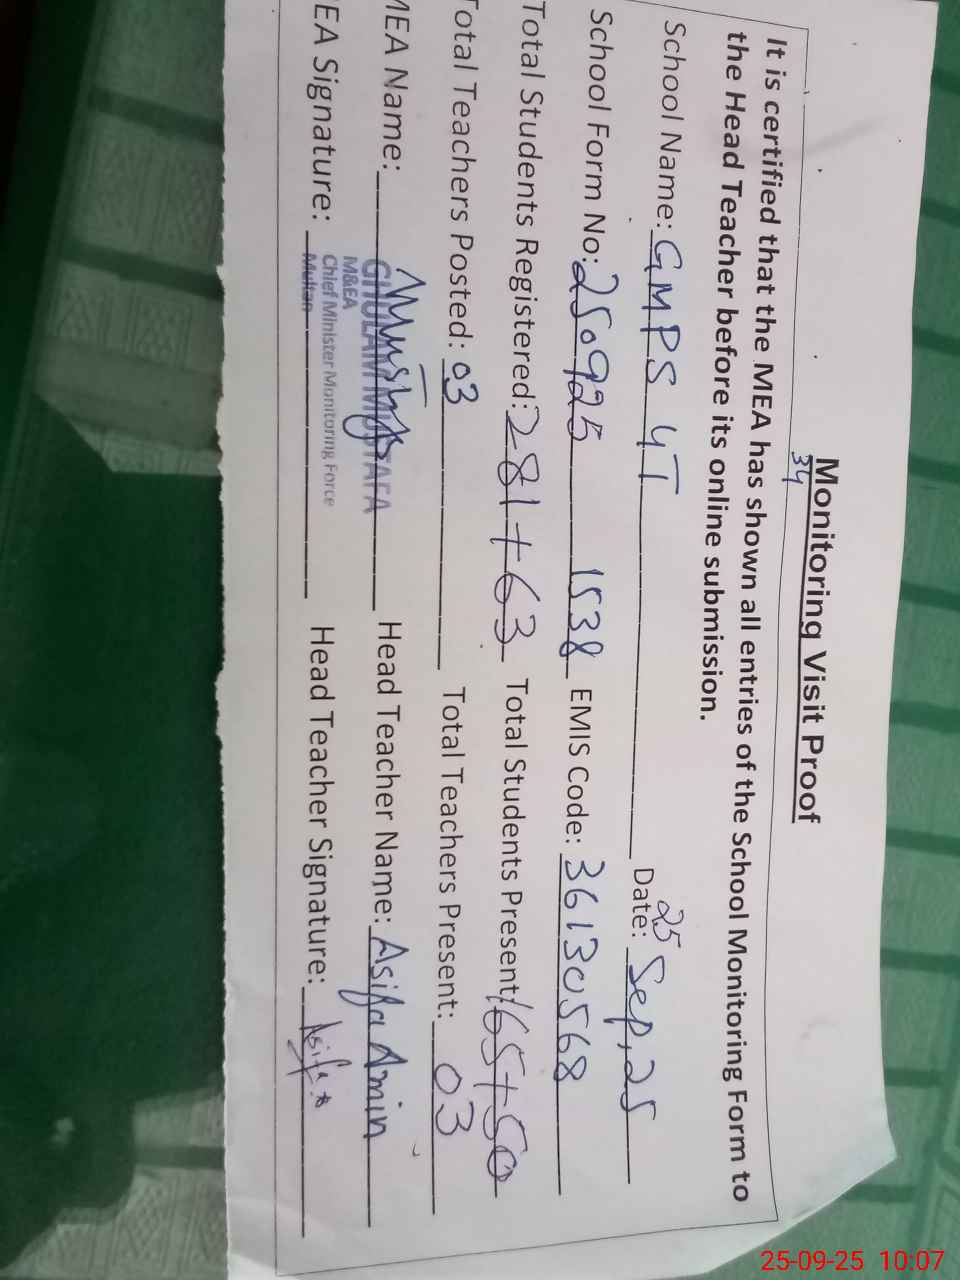 Monitoring Visit Proof
34
It is certified that the MEA has shown all entries of the School Monitoring Form to
the Head Teacher before its online submission.
School Name: GMPS 4T Date: 25 Sep, 25
School Form No: 250925 1538 EMIS Code: 36130568
Total Students Registered: 281+63 Total Students Present: 165+50
Total Teachers Posted: 03 Total Teachers Present: 03
MEA Name: GHULAM MUSTAFA Head Teacher Name: Asifa Amin
M&EA
Chief Minister Monitoring Force
Multan
MEA Signature: Head Teacher Signature: Asifa
25-09-25 10:07